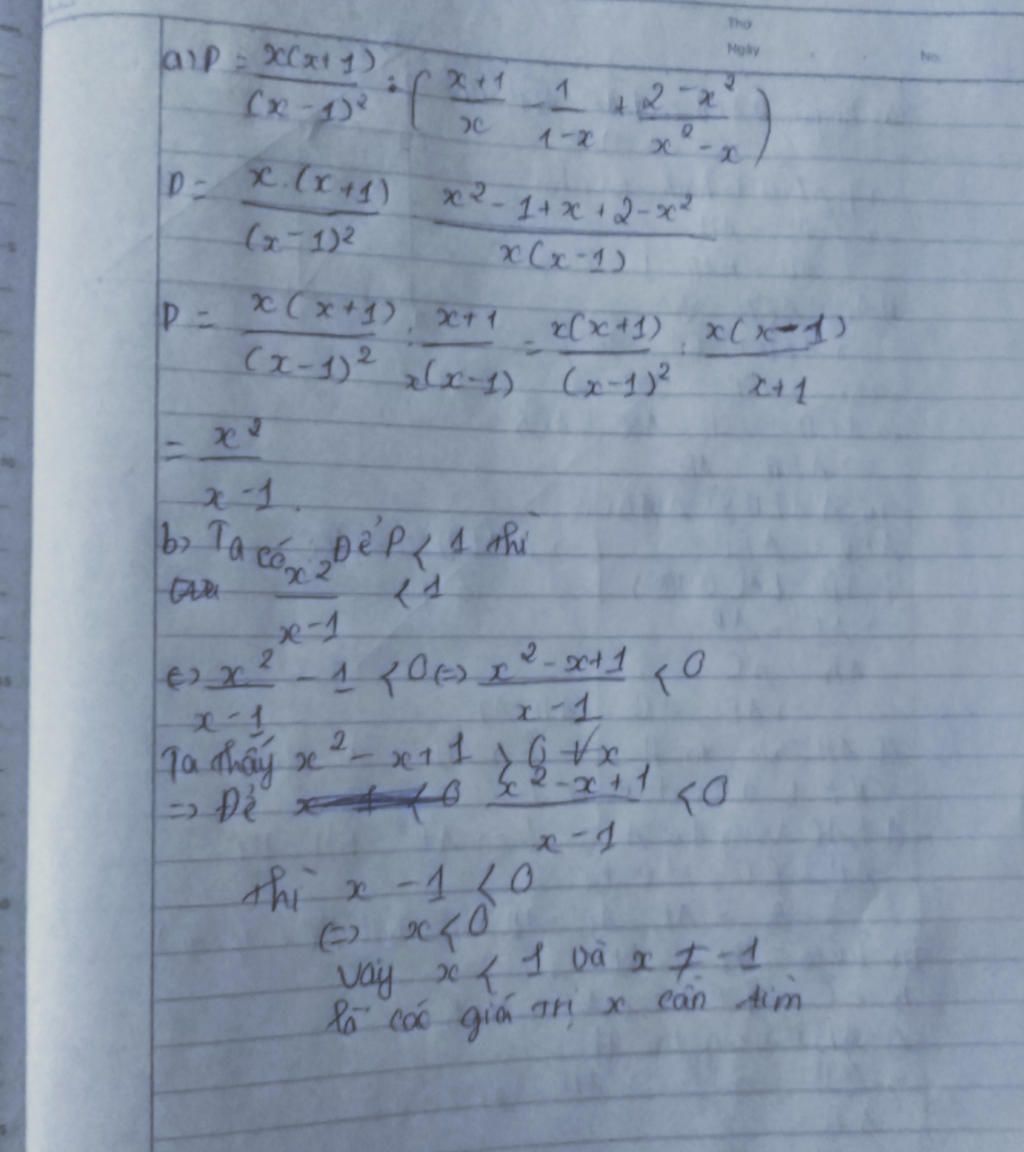 Thứ
Ngày No.
a) P = \frac{x(x+1)}{(x-1)^2} : ( \frac{x+1}{x} - \frac{1}{1-x} + \frac{2-x^2}{x^2-x} )
P = \frac{x.(x+1)}{(x-1)^2} \frac{x^2-1+x+2-x^2}{x(x-1)}
P = \frac{x(x+1)}{(x-1)^2} : \frac{x+1}{x(x-1)} = \frac{x(x+1)}{(x-1)^2} . \frac{x(x-1)}{x+1}
= \frac{x^2}{x-1}.
b) Ta có Để P < 1 thì
\frac{x^2}{x-1} < 1
<=> \frac{x^2}{x-1} - 1 < 0 <=> \frac{x^2-x+1}{x-1} < 0
Ta thấy x^2 - x + 1 > 0 ∀x
=> Để \frac{x^2-x+1}{x-1} < 0
thì x - 1 < 0
<=> x < 0
Vậy x < 1 và x ≠ -1
là các giá trị x cần tìm